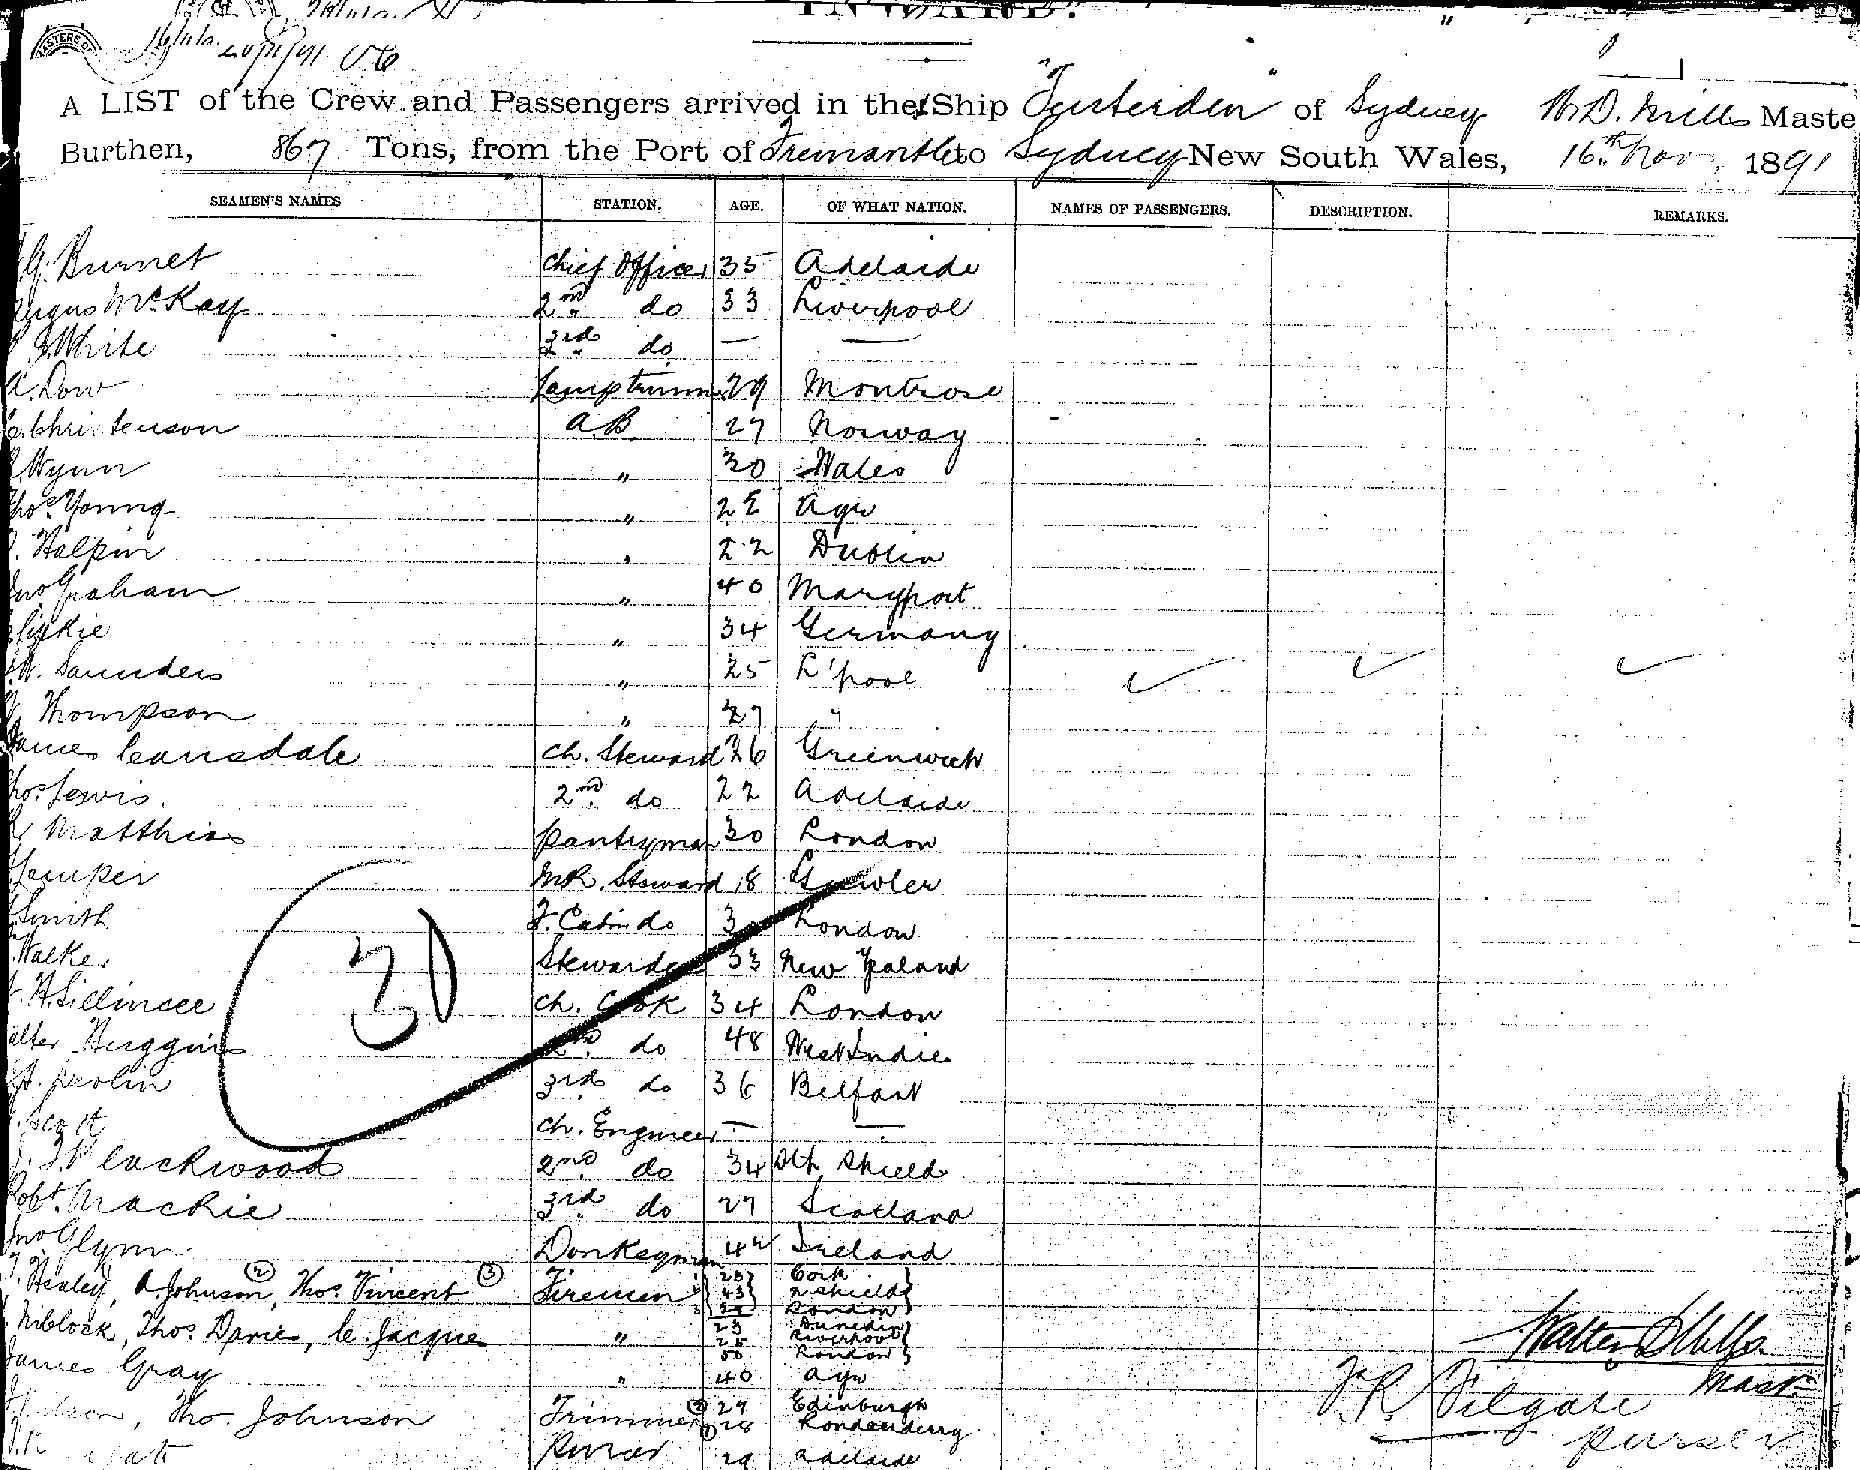 INWARD.
A LIST of the Crew and Passengers arrived in the Ship "Tenterden" of Sydney W. D. Mills Maste
Burthen, 867 Tons, from the Port of Fremantle to Sydney New South Wales, 16th Nov. 1891
SEAMEN'S NAMES STATION. AGE. OF WHAT NATION. NAMES OF PASSENGERS. DESCRIPTION. REMARKS.
G. Burnet Chief Officer 35 Adelaide
McKay 2nd do 33 Liverpool
White 3rd do — —
A. Dow Lamptrimmer 29 Montrose
Christenson A.B 27 Norway
Wynn " 30 Wales
Thos. Young " 22 Ayr
Halpin " 22 Dublin
Jno Graham " 40 Maryport
" 34 Germany
Saunders " 25 L'pool
Thompson " 27 "
James Cansdale Ch. Steward 26 Greenwich
Thos. Lewis. 2nd do 22 Adelaide
Matthias Pantryman 30 London
Kemper M.R. Steward 18 Gawler
Smith F. Cabin do 30 London
Walker Stewardess 33 New Zealand
H. Sillincee Ch. Cook 34 London
alter Huggins 2nd do 48 West Indies
3rd do 36 Belfast
Scott Ch. Engineer — —
Blackwood 2nd do 34 Sth Shields
Robt. Mackie 3rd do 27 Scotland
Jno Glynn Donkeyman 42 Ireland
Healey, A. Johnson, Thos. Vincent Firemen 43 Cork N Shields London
Niblock, Thos. Davies, C. Jacques " 23 25 50 Dunedin Liverpool London
James Gray " 40 Ayr
Thos. Johnson Trimmers 29 28 Edinburgh Londonderry
Purser 29 Adelaide
30
Walter D Mills
Mast.
J. R. Filgate
Purser